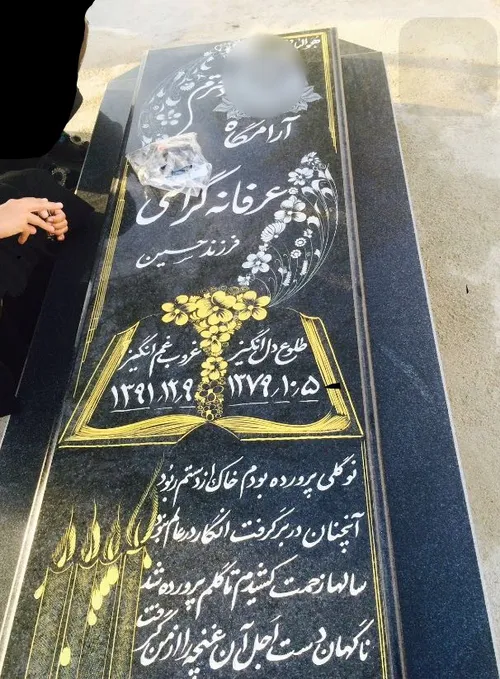 جوان
آرامگاه
عرفانه گرامی
فرزند حسین
طلوع دل انگیز غروب غم انگیز
۱۳۷۹٫۱۰٫۵ ۱۳۹۱٫۱۲٫۹
نوگلی پرورده بودم خاک از دستم ربود
آنچنان در بر گرفت انگار در عالم نبود
سالها زحمت کشیدم تا گلم پرورده شد
ناگهان دست اجل آن غنچه را از من گرفت